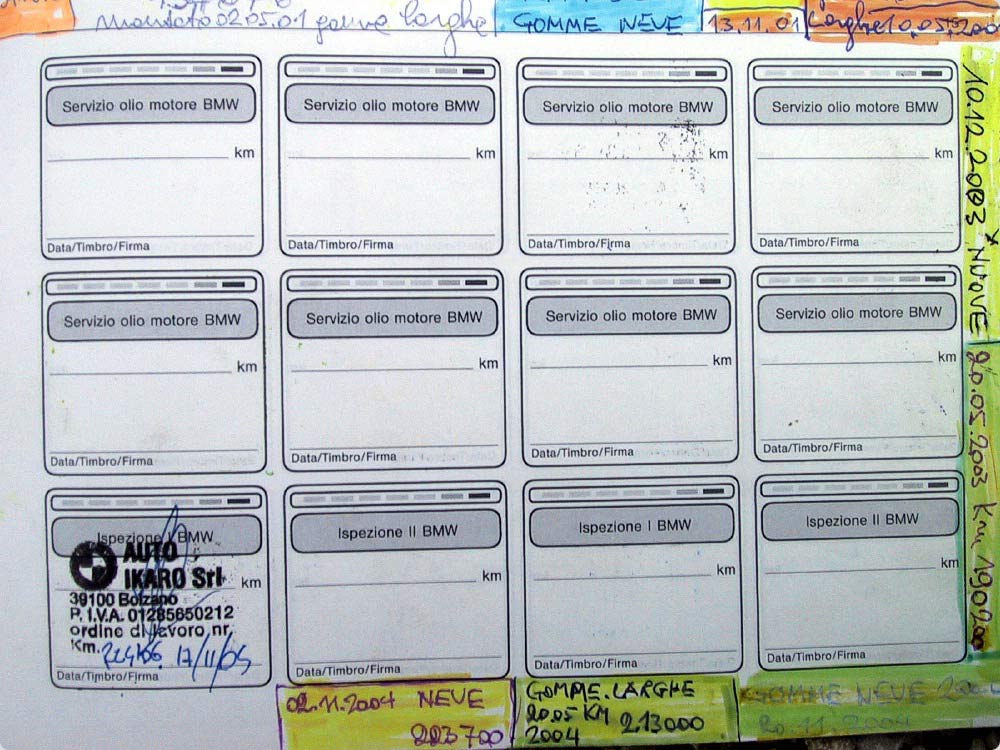 montato 02.05.01 gomme larghe
GOMME NEVE
13.11.01
Larghe 10.05.200
Servizio olio motore BMW
km
Data/Timbro/Firma
Servizio olio motore BMW
km
Data/Timbro/Firma
Servizio olio motore BMW
km
Data/Timbro/Firma
Servizio olio motore BMW
km
Data/Timbro/Firma
10.12.2003 * NUOVE
Servizio olio motore BMW
km
Data/Timbro/Firma
Servizio olio motore BMW
km
Data/Timbro/Firma
Servizio olio motore BMW
km
Data/Timbro/Firma
Servizio olio motore BMW
km
Data/Timbro/Firma
20.05.2003 Km 190200
Ispezione I BMW
AUTO
IKARO Srl
km
39100 Bolzano
P. I.V.A. 01285650212
ordine di lavoro nr.
Km. 17/11/05
Data/Timbro/Firma
Ispezione II BMW
km
Data/Timbro/Firma
Ispezione I BMW
km
Data/Timbro/Firma
Ispezione II BMW
km
Data/Timbro/Firma
02.11.2004 NEVE
223700
GOMME LARGHE
20.05 KM 213000
2004
GOMME NEVE
20.11.2004